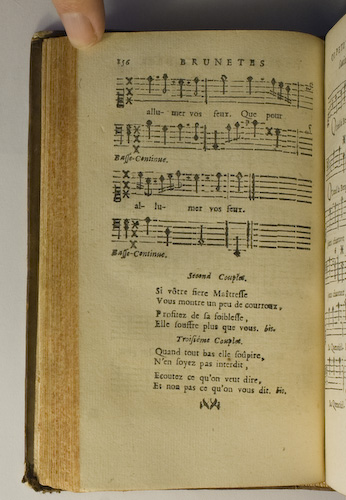 256 BRUNETES
allu- mer vos feux. Que pour
Basse-Continue.
al- lu- mer vos feux.
Basse-Continue.
Second Couplet.
Si vôtre fiere Maîtresse
Vous montre un peu de courroux,
Profitez de sa foiblesse,
Elle souffre plus que vous. bis.
Troisiéme Couplet.
Quand tout bas elle soûpire,
N'en soyez pas interdit,
Ecoutez ce qu'on veut dire,
Et non pas ce qu'on vous dit. bis.